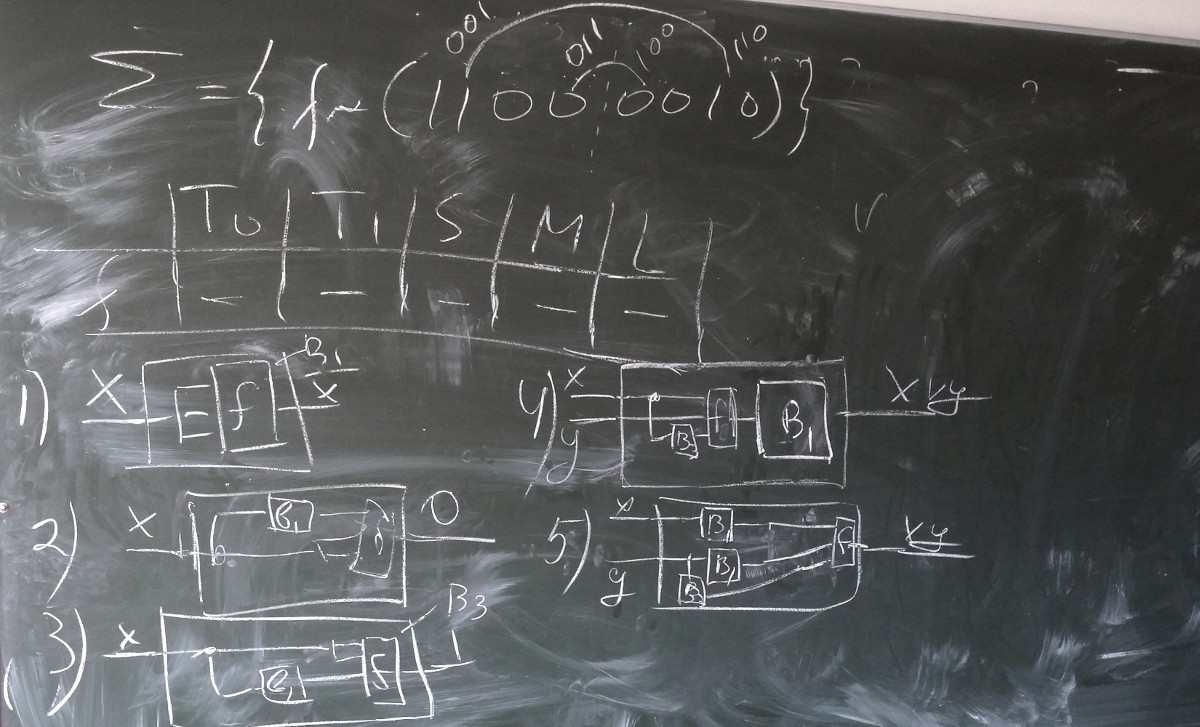 001 011 00 110
Σ = { f ~ ( 1 1 0 0 0 0 1 0 ) }
T0 T1 S M L
f — — — — —
1) X f B1 x̄
2) X B1 f 0
3) x B1 f B3 1
4) x y B f B1 x∨y
5) x y B1 B1 B f xy